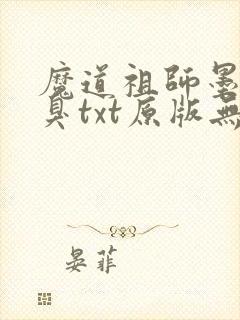 魔道祖師墨
臭txt原版無
晏菲